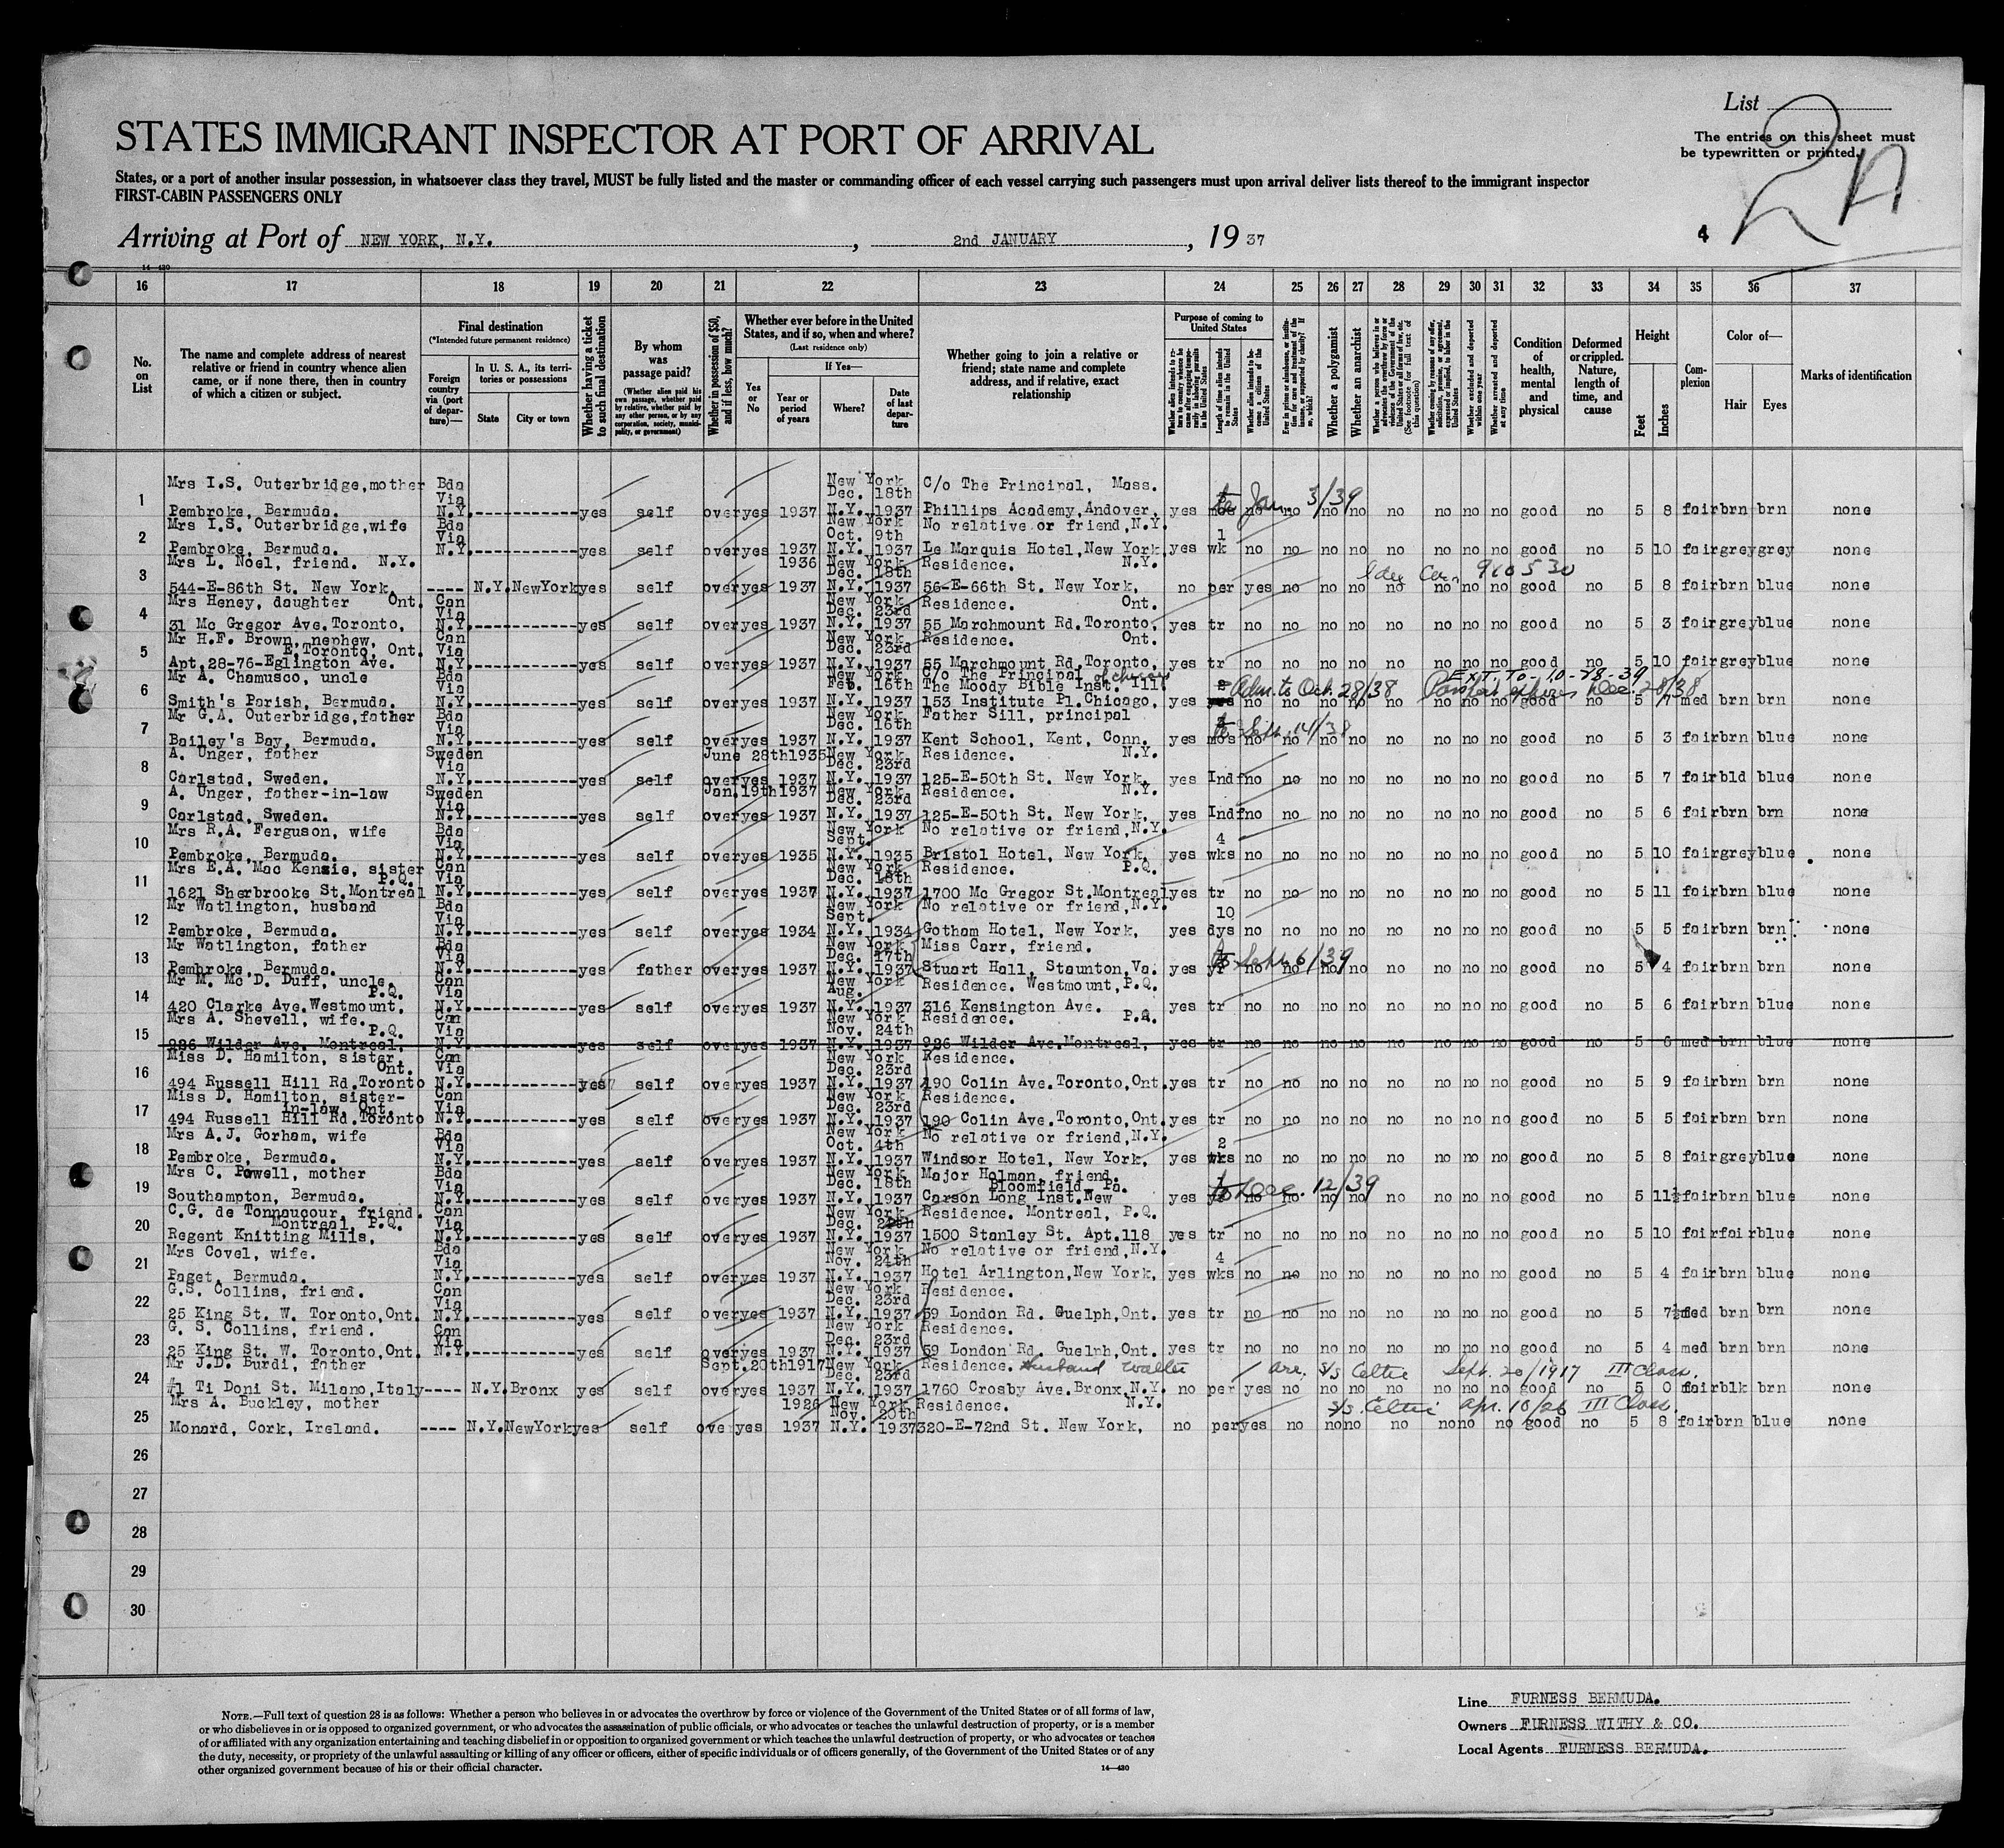 List
2A
The entries on this sheet must
be typewritten or printed.
STATES IMMIGRANT INSPECTOR AT PORT OF ARRIVAL
States, or a port of another insular possession, in whatsoever class they travel, MUST be fully listed and the master or commanding officer of each vessel carrying such passengers must upon arrival deliver lists thereof to the immigrant inspector
FIRST-CABIN PASSENGERS ONLY
Arriving at Port of NEW YORK, N.Y. , 2nd JANUARY , 19 37
4
14—430
16 17 18 19 20 21 22 23 24 25 26 27 28 29 30 31 32 33 34 35 36 37
No. on List
The name and complete address of nearest relative or friend in country whence alien came, or if none there, then in country of which a citizen or subject.
Final destination
(*Intended future permanent residence)
Foreign country via (port of departure)—
In U. S. A., its territories or possessions
State City or town
Whether having a ticket to such final destination
By whom was passage paid?
(Whether alien paid his own passage, whether paid by relative, whether paid by any other person, or by any corporation, society, municipality, or government)
Whether in possession of $50, and if less, how much?
Whether ever before in the United States, and if so, when and where?
(Last residence only)
Yes or No
If Yes—
Year or period of years
Where?
Date of last departure
Whether going to join a relative or friend; state name and complete address, and if relative, exact relationship
Purpose of coming to United States
Length of time alien intends to remain in the United States
Whether alien intends to become a citizen of the United States
Whether a polygamist
Whether an anarchist
Whether excluded and deported within one year
Whether arrested and deported at any time
Condition of health, mental and physical
Deformed or crippled. Nature, length of time, and cause
Height
Feet Inches
Complexion
Color of—
Hair Eyes
Marks of identification
Mrs I.S. Outerbridge,mother Bda New York C/o The Principal, Mass.
1 Via Dec. 18th to Jan. 3/39
Pembroke, Bermuda. N.Y.------------yes self over yes 1937 N.Y. 1937 Phillips Academy,Andover, yes mos no no no no no no no no good no 5 8 fair brn brn none
Mrs I.S. Outerbridge,wife Bda New York No relative or friend,N.Y.
2 Via Oct. 9th 1
Pembroke, Bermuda. N.Y.------------yes self over yes 1937 N.Y. 1937 Le Marquis Hotel,New York, yes wk no no no no no no no no good no 5 10 fair grey grey none
Mrs L. Noel, friend. N.Y. 1936 New York Residence. N.Y.
3 Dec. 18th 910530
544-E-86th St. New York. ---- N.Y. NewYork yes self over yes 1937 N.Y. 1937 56-E-66th St. New York, no per yes no no no no no no no good no 5 8 fair brn blue none
Mrs Heney, daughter Ont. Can New York Residence. Ont.
4 Via Dec. 23rd
31 Mc Gregor Ave.Toronto, N.Y.------------yes self over yes 1937 N.Y. 1937 55 Marchmount Rd.Toronto, yes tr no no no no no no no no good no 5 3 fair grey blue none
Mr H.F. Brown, nephew, Can New York Residence. Ont.
5 E.Toronto, Ont. Via Dec. 23rd
Apt.28-76-Eglington Ave. N.Y.------------yes self over yes 1937 N.Y. 1937 55 Marchmount Rd.Toronto, yes tr no no no no no no no no good no 5 10 fair grey blue none
Mr A. Chamusco, uncle Bda New York C/o The Principal of Chicago EXT. TO-10-28-39
6 Via Feb. 16th The Moody Bible Inst. Ill. Adm. to Oct. 28/38 Passport expires Dec. 28/38
Smith's Parish, Bermuda. N.Y.------------yes self over yes 1937 N.Y. 1937 153 Institute Pl.Chicago, yes yrs no no no no no no no no good no 5 7 med brn brn none
Mr G.A. Outerbridge,father Bda New York Father Sill, principal
7 Via Dec. 16th to Sept. 14/38
Bailey's Bay, Bermuda. N.Y.------------yes self over yes 1937 N.Y. 1937 Kent School, Kent, Conn. yes mos no no no no no no no no good no 5 3 fair brn blue none
A. Unger, father Sweden June 28th1935 New York Residence. N.Y.
8 Via Dec. 23rd
Carlstad, Sweden. N.Y.------------yes self over yes 1937 N.Y. 1937 125-E-50th St. New York, yes Indf no no no no no no no no good no 5 7 fair bld blue none
A. Unger, father-in-law Sweden Jan.19th1937 New York Residence. N.Y.
9 Via Dec. 23rd
Carlstad, Sweden. N.Y.------------yes self over yes 1937 N.Y. 1937 125-E-50th St. New York, yes Indf no no no no no no no no good no 5 6 fair brn brn none
Mrs R.A. Ferguson, wife Bda New York No relative or friend,N.Y.
10 Via Sept. 4
Pembroke, Bermuda. N.Y.------------yes self over yes 1935 N.Y. 1935 Bristol Hotel, New York, yes wks no no no no no no no no good no 5 10 fair grey blue none
Mrs E.A. Mac Kenzie, sister Can New York Residence. P.Q.
11 P.Q. Via Dec. 18th
1621 Sherbrooke St.Montreal N.Y.------------yes self over yes 1937 N.Y. 1937 1700 Mc Gregor St.Montreal yes tr no no no no no no no no good no 5 11 fair brn blue none
Mr Watlington, husband Bda New York No relative or friend,N.Y.
12 Via Sept. 10
Pembroke, Bermuda. N.Y.------------yes self over yes 1934 N.Y. 1934 Gotham Hotel, New York, yes dys no no no no no no no no good no 5 5 fair brn brn none
Mr Watlington, father Bda New York Miss Carr, friend.
13 Via Dec. 17th to Sept. 6/39
Pembroke, Bermuda. N.Y.------------yes father over yes 1937 N.Y. 1937 Stuart Hall, Staunton,Va. yes yr no no no no no no no no good no 5 4 fair brn brn none
Mr M. Mc D. Duff, uncle. Can New York Residence. Westmount,P.Q.
14 P.Q. Via Aug.
420 Clarke Ave.Westmount, N.Y.------------yes self over yes 1937 N.Y. 1937 316 Kensington Ave. yes tr no no no no no no no no good no 5 6 fair brn blue none
Mrs A. Shevell, wife. Can New York Residence. P.Q.
15 P.Q. Via Nov. 24th
986 Wilder Ave. Montreal, N.Y.------------yes self over yes 1937 N.Y. 1937 986 Wilder Ave.Montreal, yes tr no no no no no no no no good no 5 6 med brn blue none
Miss D. Hamilton, sister Can New York Residence.
16 Ont. Via Dec. 23rd
494 Russell Hill Rd.Toronto N.Y.------------yes self over yes 1937 N.Y. 1937 190 Colin Ave.Toronto,Ont. yes tr no no no no no no no no good no 5 9 fair brn brn none
Miss D. Hamilton, sister- Can New York Residence.
17 in-law, Ont. Via Dec. 23rd
494 Russell Hill Rd.Toronto N.Y.------------yes self over yes 1937 N.Y. 1937 190 Colin Ave.Toronto,Ont. yes tr no no no no no no no no good no 5 5 fair brn brn none
Mrs A.J. Gorham, wife Bda New York No relative or friend,N.Y.
18 Via Oct. 4th 2
Pembroke, Bermuda. N.Y.------------yes self over yes 1937 N.Y. 1937 Windsor Hotel, New York, yes wks no no no no no no no no good no 5 8 fair grey blue none
Mrs C. Powell, mother Bda New York Major Holman, friend.
19 Via Dec. 18th Bloomfield, Pa. to Dec. 12/39
Southampton, Bermuda. N.Y.------------yes self over yes 1937 N.Y. 1937 Carson Long Inst.New yes yr no no no no no no no no good no 5 11½ fair brn blue none
C.G. de Tonnaucour, friend. Can New York Residence. Montreal, P.Q.
20 Montreal, P.Q. Via Dec. 24th
Regent Knitting Mills, N.Y.------------yes self over yes 1937 N.Y. 1937 1500 Stanley St. Apt.118 yes tr no no no no no no no no good no 5 10 fair fair blue none
Mrs Covel, wife. Bda New York No relative or friend,N.Y.
21 Via Nov. 24th 4
Paget, Bermuda. N.Y.------------yes self over yes 1937 N.Y. 1937 Hotel Arlington,New York, yes wks no no no no no no no no good no 5 4 fair brn blue none
G.S. Collins, friend. Can New York Residence.
22 Via Dec. 23rd
25 King St. W. Toronto,Ont. N.Y.------------yes self over yes 1937 N.Y. 1937 59 London Rd. Guelph,Ont. yes tr no no no no no no no no good no 5 7½ med brn brn none
G. S. Collins, friend. Can New York Residence.
23 Via Dec. 23rd
25 King St. W. Toronto,Ont. N.Y.------------yes self over yes 1937 N.Y. 1937 59 London Rd. Guelph, Ont. yes tr no no no no no no no no good no 5 4 med brn brn none
Mr J.D. Burdi, father Sept.20th1917 New York Residence. Husband Walter arr. S/S Celtic Sept. 20/1917 III Class.
24 Dec. 23rd
#1 Ti Doni St. Milano,Italy---- N.Y. Bronx yes self over yes 1937 N.Y. 1937 1760 Crosby Ave.Bronx,N.Y. no per yes no no no no no no no good no 5 0 fair blk brn none
Mrs A. Buckley, mother 1926 New York Residence. N.Y. S/S. Celtic Apr. 18/26 III Class.
25 Nov. 20th
Monard, Cork, Ireland. ---- N.Y. NewYork yes self over yes 1937 N.Y. 1937 320-E-72nd St. New York, no per yes no no no no no no no good no 5 8 fair brn blue none
26
27
28
29
30
NOTE.—Full text of question 28 is as follows: Whether a person who believes in or advocates the overthrow by force or violence of the Government of the United States or of all forms of law,
or who disbelieves in or is opposed to organized government, or who advocates the assassination of public officials, or who advocates or teaches the unlawful destruction of property, or is a member
of or affiliated with any organization entertaining and teaching disbelief in or opposition to organized government or which teaches the unlawful destruction of property, or who advocates or teaches
the duty, necessity, or propriety of the unlawful assaulting or killing of any officer or officers, either of specific individuals or of officers generally, of the Government of the United States or of any
other organized government because of his or their official character.
14—430
Line FURNESS BERMUDA.
Owners FURNESS WITHY & CO.
Local Agents FURNESS BERMUDA.